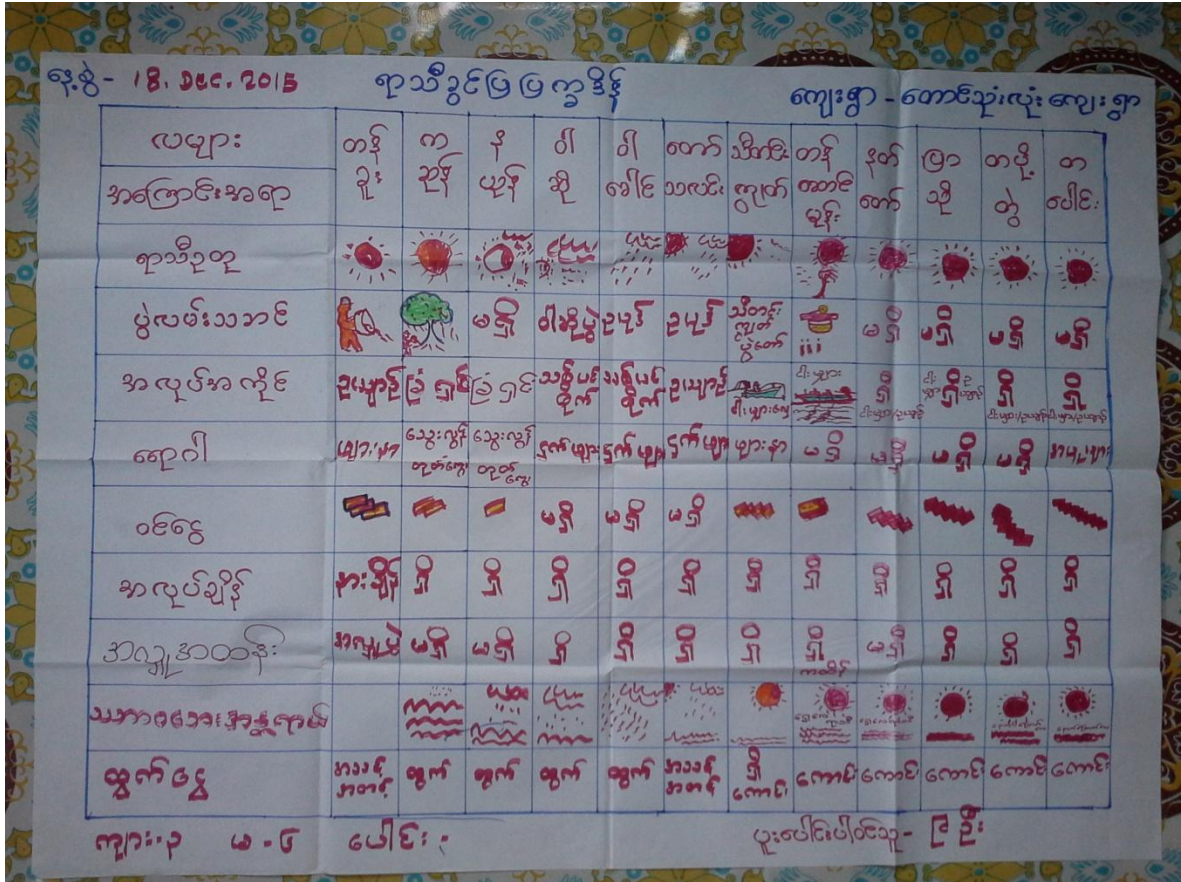 နေ့စွဲ - 18. Dec. 2015 ရာသီခွင်ပြပြက္ခဒိန် ကျေးရွာ - တောင်သုံးလုံးကျေးရွာ
လများ တန်ခူး ကဆုန် နယုန် ဝါဆို ဝါခေါင် တော်သလင်း သီတင်းကျွတ် တန်ဆောင်မုန်း နတ်တော် ပြာသို တပို့တွဲ တပေါင်း
အကြောင်းအရာ
ရာသီဥတု
ပွဲလမ်းသဘင် မရှိ ဝါဆိုပွဲ ဥပုဒ် ဥပုဒ် သီတင်းကျွတ်ပွဲတော် မရှိ မရှိ မရှိ မရှိ
အလုပ်အကိုင် ဥယျာဉ် ခြံရှင်း ခြံရှင်း သစ်ပင်စိုက် သစ်ပင်စိုက် ဥယျာဉ် ငါးဖျား ရှိ ရှိ ရှိ ရှိ
ရောဂါ ဖျားနာ သွေးလွန်တုတ်ကွေး သွေးလွန်တုတ်ကွေး ငှက်ဖျား ငှက်ဖျား ငှက်ဖျား ဖျားနာ မရှိ မရှိ မရှိ မရှိ
ဝင်ငွေ မရှိ မရှိ မရှိ
အလုပ်ချိန် နားချိန် ရှိ ရှိ ရှိ ရှိ ရှိ ရှိ ရှိ ရှိ ရှိ ရှိ ရှိ
အလှူအတန်း အလှူပွဲ မရှိ မရှိ ရှိ ရှိ ရှိ ရှိ ရှိ ကထိန် မရှိ ရှိ ရှိ ရှိ
သဘာဝဘေးအန္တရာယ်
ထွက်ငွေ အသင့်အတင့် ထွက် ထွက် ထွက် ထွက် အသင့်အတင့် ရှိကောင်း ကောင်း ကောင်း ကောင်း ကောင်း ကောင်း
ကျား - ၃ မ - ၄ ပေါင်း - ပူးပေါင်းပါဝင်သူ - ဦး